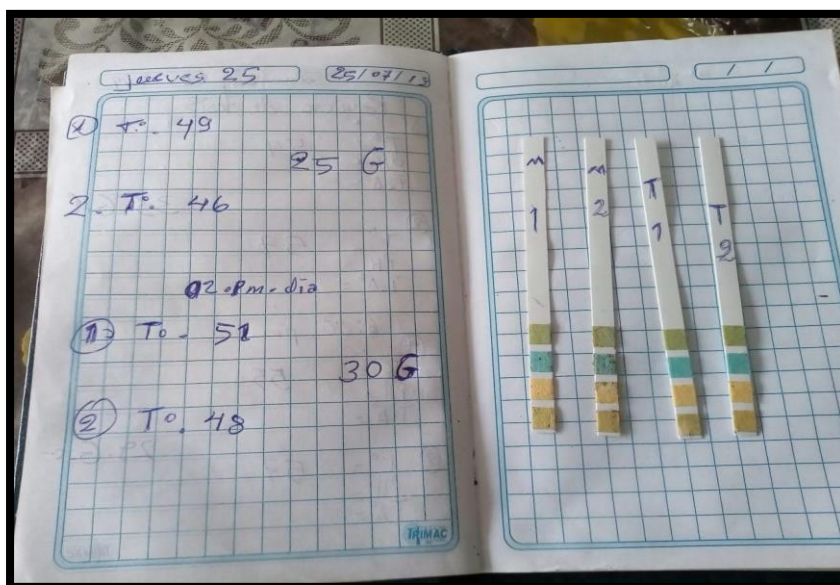 jueves 25
25/07/19
1 T°. 49
25 G
2. T°. 46
02.Pm. dia
1 T° - 51
30 G
2 T°. 48
TRIMAC
/ /
M 1
M 2
T 1
T 2